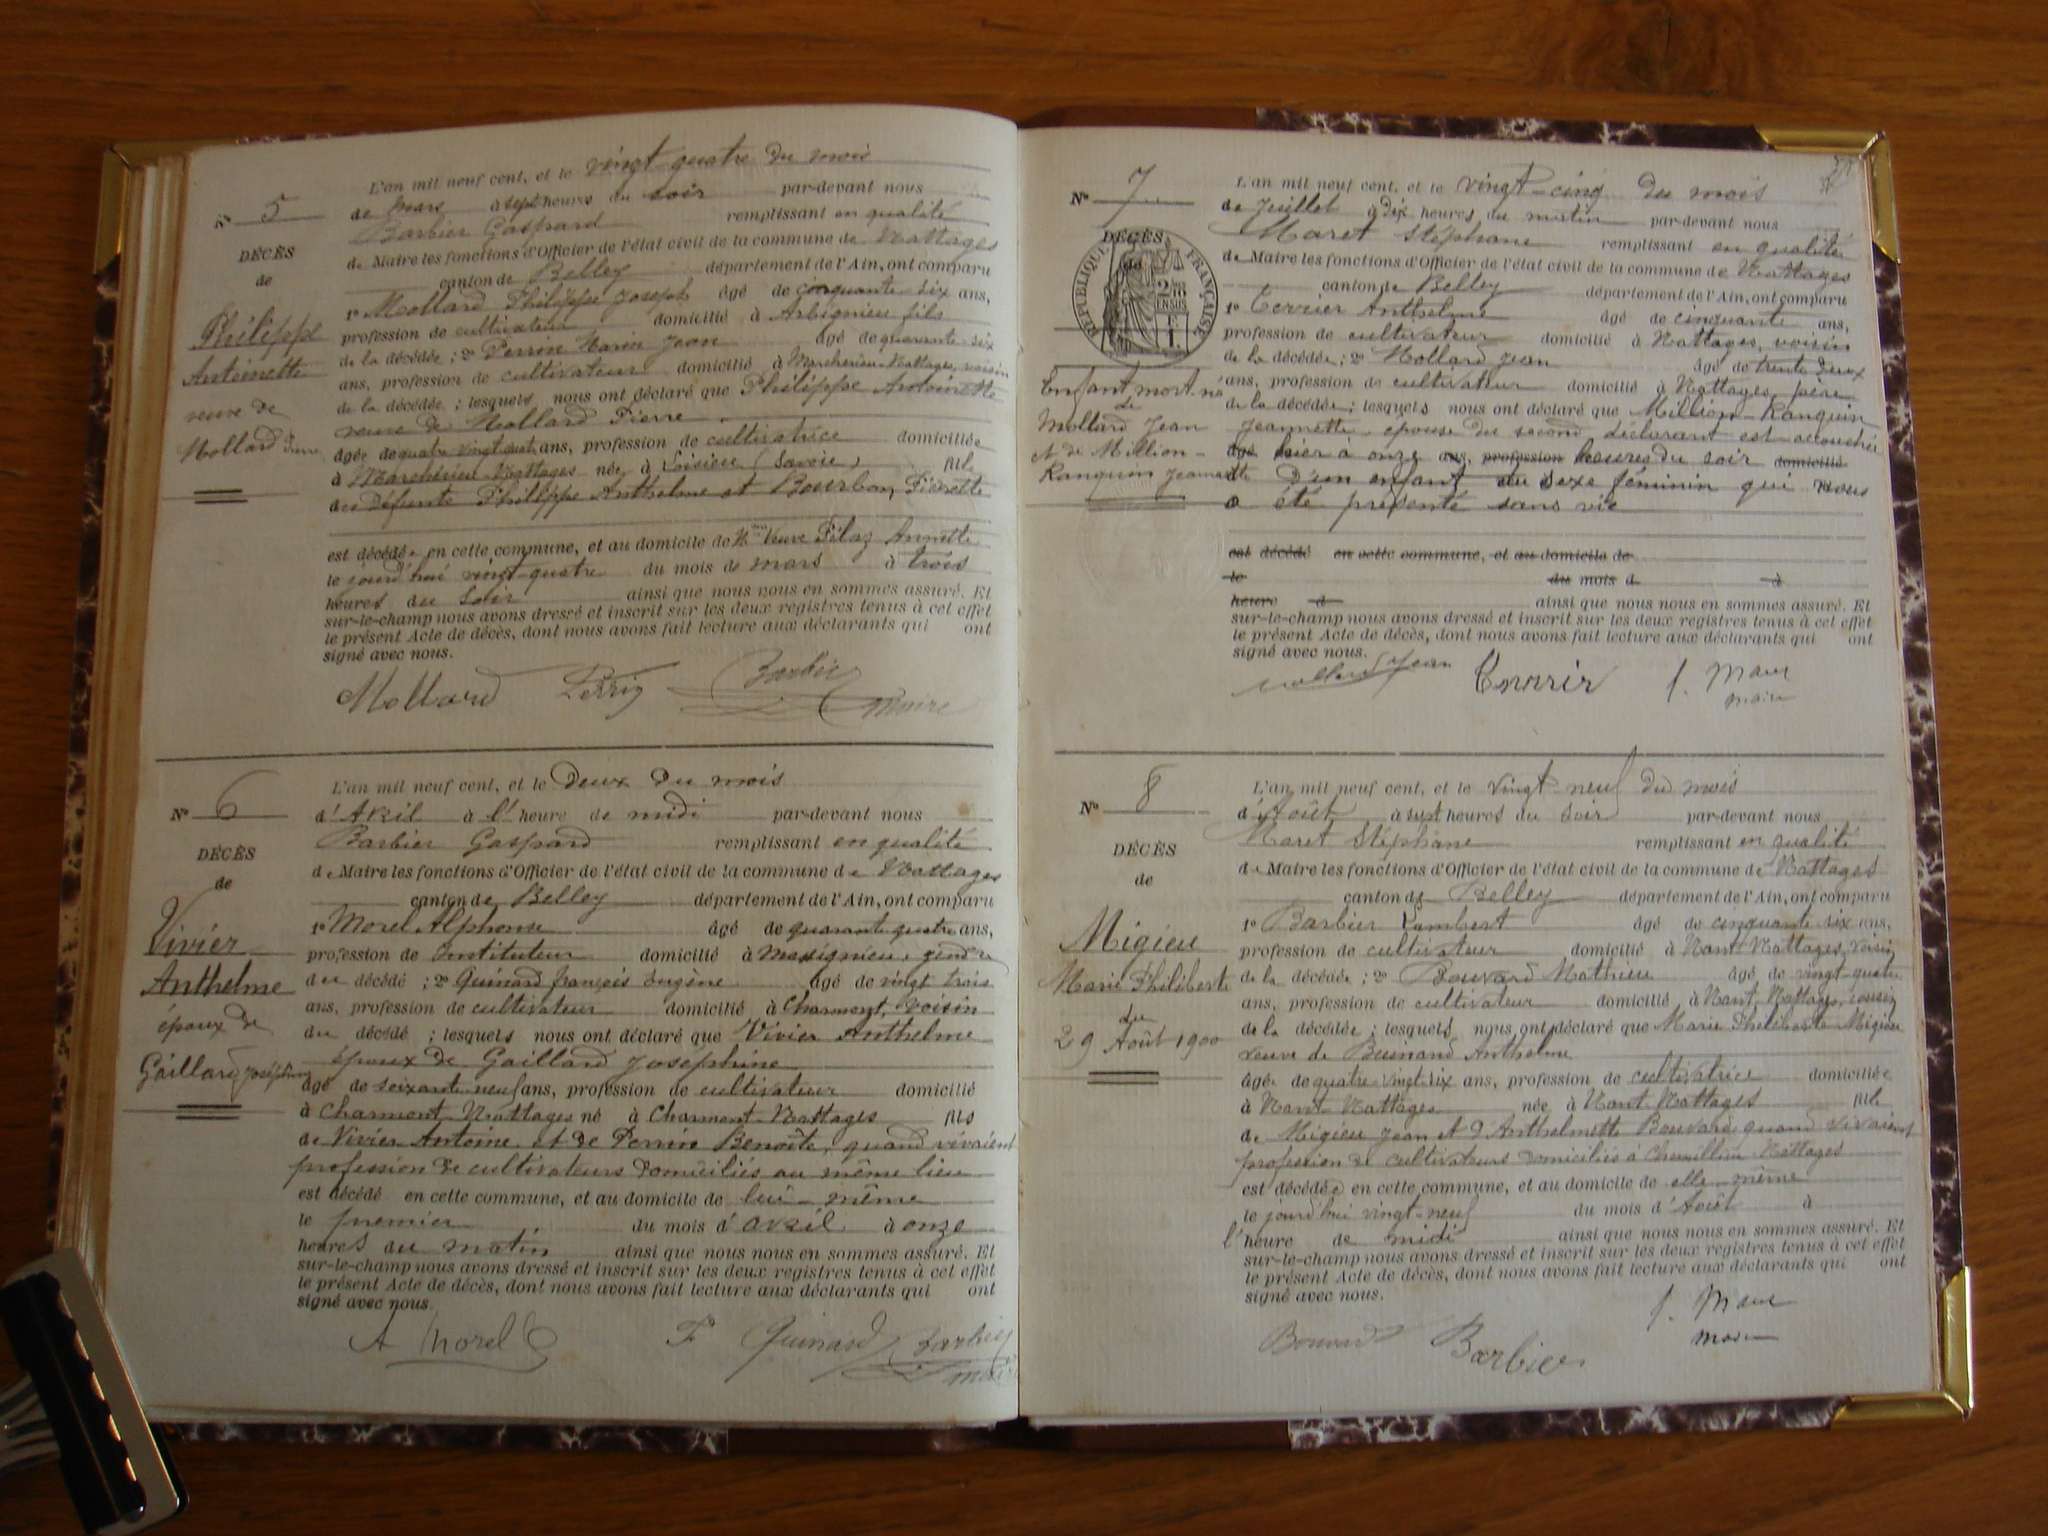 L'an mil neuf cent, et le vingt quatre du mois
N° 5 de Mars à sept heures du soir par-devant nous
Barbier Gaspard remplissant en qualité
de Maire les fonctions d'Officier de l'état civil de la commune de Nattages
canton de Belley département de l'Ain, ont comparu
1° Mollard Philippe Joseph âgé de cinquante six ans,
profession de cultivateur domicilié à Arbignieu fils
de la décédée ; 2° Perrin Marin Jean âgé de quarante-six
ans, profession de cultivateur domicilié à Marcherieu-Nattages, voisin
de la décédée ; lesquels nous ont déclaré que Philippe Antoinette
veuve de Mollard Pierre
âgée de quatre vingt ans, profession de cultivatrice domiciliée
à Marcherieu Nattages née à Loisieu (Savoie) fille
des défunts Philippe Anthelme et Bourbon Pierrette
est décédée en cette commune, et au domicile de Mme Veuve Filaz Annette
le jourd'hui vingt-quatre du mois de mars à trois
heures du soir ainsi que nous nous en sommes assuré. Et
sur-le-champ nous avons dressé et inscrit sur les deux registres tenus à cet effet
le présent Acte de décès, dont nous avons fait lecture aux déclarants qui ont
signé avec nous.
Mollard Perrin Barbier
Maire
DÉCÈS
de
Philippe
Antoinette
veuve de
Mollard Pierre
L'an mil neuf cent, et le Deux du mois
N° 6 d'Avril à l'heure de midi par-devant nous
Barbier Gaspard remplissant en qualité
de Maire les fonctions d'Officier de l'état civil de la commune de Nattages
canton de Belley département de l'Ain, ont comparu
1° Morel Alphonse âgé de quarante quatre ans,
profession de Instituteur domicilié à Massignieu, gendre
du décédé ; 2° Guinard françois Eugène âgé de vingt trois
ans, profession de cultivateur domicilié à Charmont, voisin
du décédé ; lesquels nous ont déclaré que Vivier Anthelme
époux de Gaillard Joséphine
âgé de soixante neuf ans, profession de cultivateur domicilié
à Charmont Nattages né à Charmont-Nattages fils
de Vivier Antoine et de Perrin Benoîte, quand vivaient
profession de cultivateurs domiciliés au même lieu
est décédé en cette commune, et au domicile de lui-même
le premier du mois d'avril à onze
heures du matin ainsi que nous nous en sommes assuré. Et
sur-le-champ nous avons dressé et inscrit sur les deux registres tenus à cet effet
le présent Acte de décès, dont nous avons fait lecture aux déclarants qui ont
signé avec nous.
A Morel F Guinard Barbier
maire
DÉCÈS
de
Vivier
Anthelme
époux de
Gaillard Joséphine
L'an mil neuf cent, et le vingt-cinq du mois
N° 7 de Juillet à dix heures du matin par-devant nous
Maret Stéphane remplissant en qualité
de Maire les fonctions d'Officier de l'état civil de la commune de Nattages
canton de Belley département de l'Ain, ont comparu
1° Terrier Anthelme âgé de cinquante ans,
profession de cultivateur domicilié à Nattages, voisin
de la décédée ; 2° Mollard Jean âgé de trente deux
ans, profession de cultivateur domicilié à Nattages, père
de la décédée ; lesquels nous ont déclaré que Million-Ranquin
Jeannette épouse du second déclarant est accouchée
âgé hier à onze ans, profession heures du soir domicilié
d'un enfant du sexe féminin qui nous
a été présenté sans vie
est décédé en cette commune, et au domicile de
le du mois d à
heure d ainsi que nous nous en sommes assuré. Et
sur-le-champ nous avons dressé et inscrit sur les deux registres tenus à cet effet
le présent Acte de décès, dont nous avons fait lecture aux déclarants qui ont
signé avec nous.
Mollard Jean Terrier
maire
DÉCÈS
RÉPUBLIQUE FRANÇAISE
Enfant mort-né
de
Mollard Jean
et de Million-
Ranquin Jeannette
L'an mil neuf cent, et le vingt neuf du mois
N° 8 d'Août à sept heures du soir par-devant nous
Maret Stéphane remplissant en qualité
de Maire les fonctions d'Officier de l'état civil de la commune de Nattages
canton de Belley département de l'Ain, ont comparu
1° Barbier Lambert âgé de cinquante six ans,
profession de cultivateur domicilié à Nant-Nattages, voisin
de la décédée ; 2° Bouvard Mathieu âgé de vingt-quatre
ans, profession de cultivateur domicilié à Nant-Nattages, cousin
de la décédée ; lesquels nous ont déclaré que Marie Philiberte Migieu
veuve de Anthelme
âgée de quatre-vingt-six ans, profession de cultivatrice domiciliée
à Nant Nattages née à Nant Nattages fille
de Migieu Jean et d'Anthelmette Bouvard quand vivaient
profession de cultivateurs domiciliés à Chemillieu Nattages
est décédée en cette commune, et au domicile de elle-même
le jourd'hui vingt-neuf du mois d'Août à
l'heure de midi ainsi que nous nous en sommes assuré. Et
sur-le-champ nous avons dressé et inscrit sur les deux registres tenus à cet effet
le présent Acte de décès, dont nous avons fait lecture aux déclarants qui ont
signé avec nous.
Bouvard Barbier
DÉCÈS
de
Migieu
Marie Philiberte
du
29 Août 1900